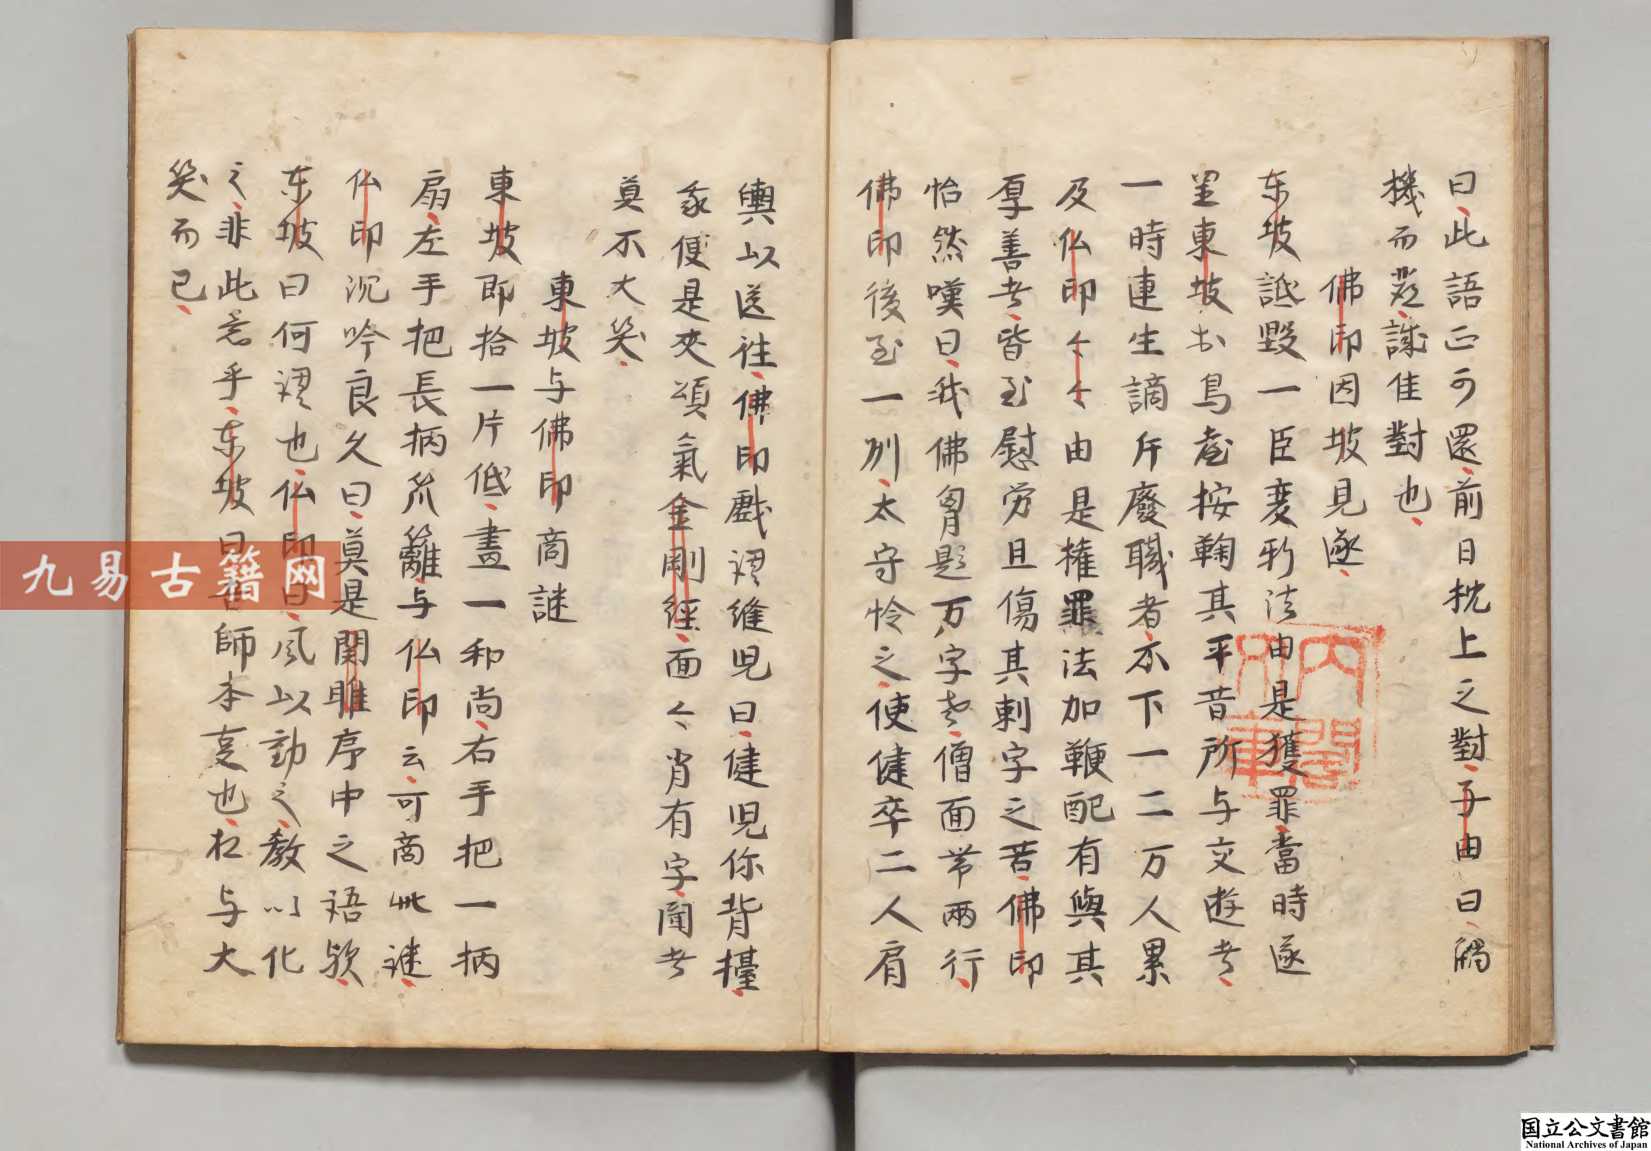 曰此語正可還前日挩上之對子由曰觸
機而發誠佳對也
佛印因坡見逐
东坡詆毀一臣変新法由是獲罪當時逐
至東坡於烏臺按鞠其平昔所与交遊者
一時連生謫斥廢職者不下一二万人累
及仏印々々由是權罪法加鞭配有與其
厚善者皆至慰労且傷其刺字之苦佛印
怡然嘆曰我佛胷題万字老僧面帯兩行
佛印後至一州太守怜之使健卒二人肩
輿以送往佛印戲謂維児曰健児你背擡
我便是夾頌氣金剛經面々肖有字聞者
莫不大笑
東坡与佛印商謎
東坡即拾一片低畫一和尚右手把一柄
扇左手把長柄笊籬与仏印云可商此謎
仏印沉吟良久曰莫是関雎序中之語欤
东坡曰何謂也仏印曰風以動之教以化
之非此意乎东坡曰吾師本事也相与大
笑而已
内
閣
文
庫
九易古籍网
国立公文書館
National Archives of Japan